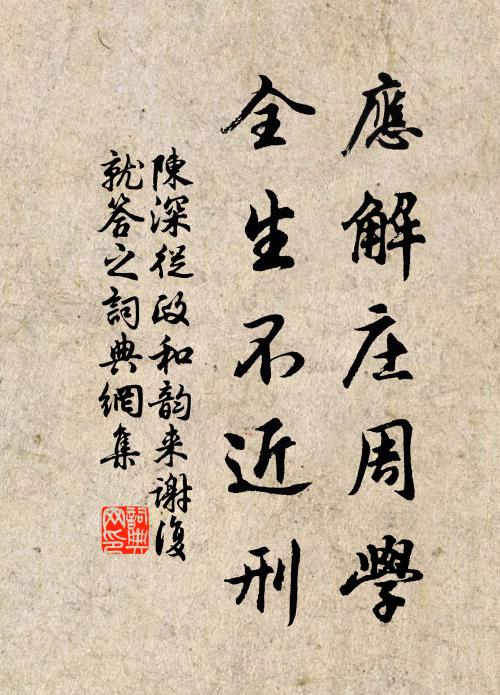 應解庄周學
全生不近刑
陳深從政和韵来謝復
就答之詞典網集
詞典
网印